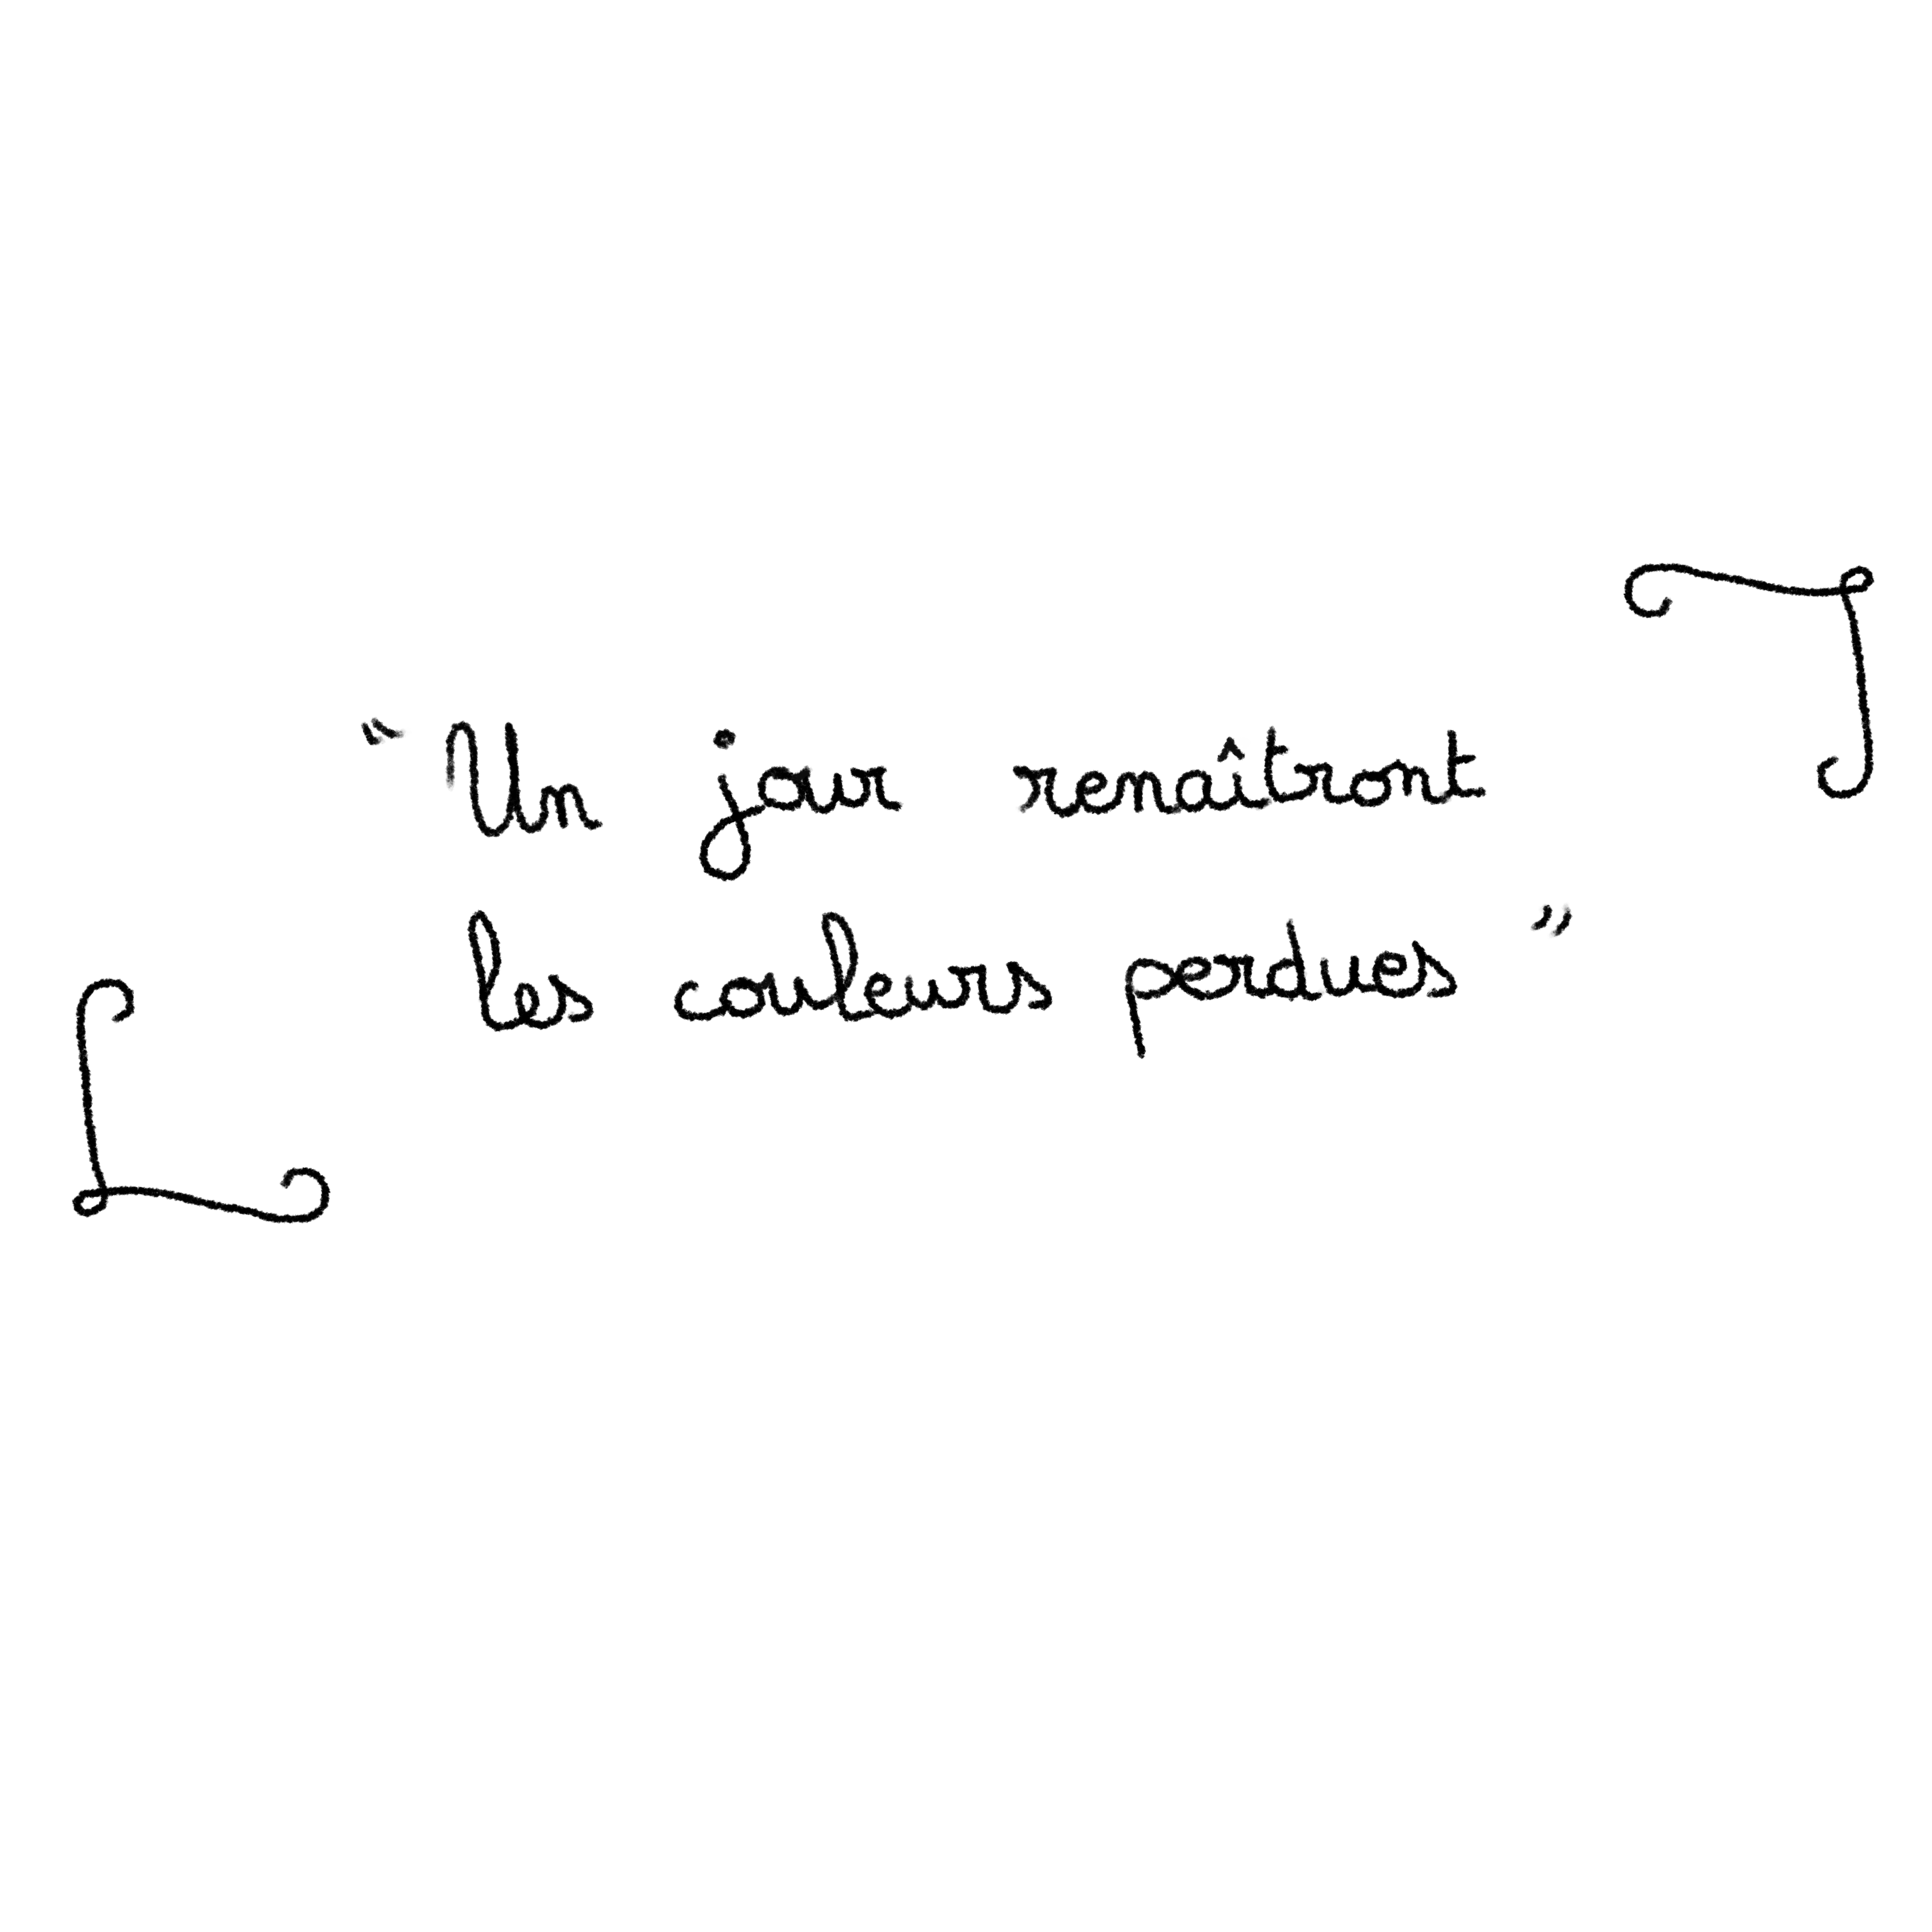 “Un jour renaîtront
les couleurs perdues”